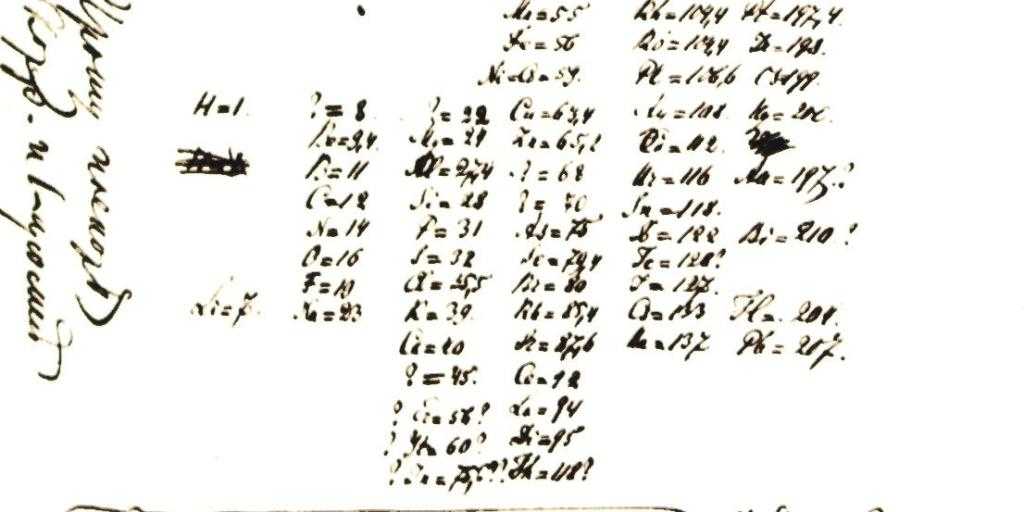 Mn=55 Rh=104,4 Pt=197,4.
Fe=56 Ro=104,4 Ir=198.
Ni=Co=59. Pl=106,6 Os=199.
H=1. ?=8 ?=22 Cu=63,4 Ag=108. Hg=200.
Be=9,4 Mg=24 Zn=65,2 Cd=112.
B=11 Al=27,4 ?=68 Ur=116 Au=197?
C=12 Si=28 ?=70 Sn=118.
N=14 P=31 As=75 Sb=122 Bi=210?
O=16 S=32 Se=79,4 Te=128?
F=19 Cl=35,5 Br=80 J=127.
Li=7. Na=23 K=39. Rb=85,4 Cs=133 Tl=204.
Ca=40 Sr=87,6 Ba=137 Pb=207.
?=45. Ce=92
? Er=56? La=94
? Yt=60? Di=95
? In=75,6?? Th=118?